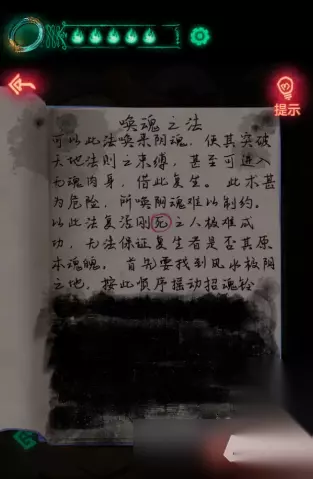 提示
唤魂之法
可以此法唤来阴魂，使其突破
天地法则之束缚，甚至可进入
无魂肉身，借此复生。此术甚
为危险，所唤阴魂难以制约。
以此法复活刚死之人极难成
功，无法保证复生者是否其原
本魂魄，首先要找到风水极阴
之地，按此顺序摇动招魂铃